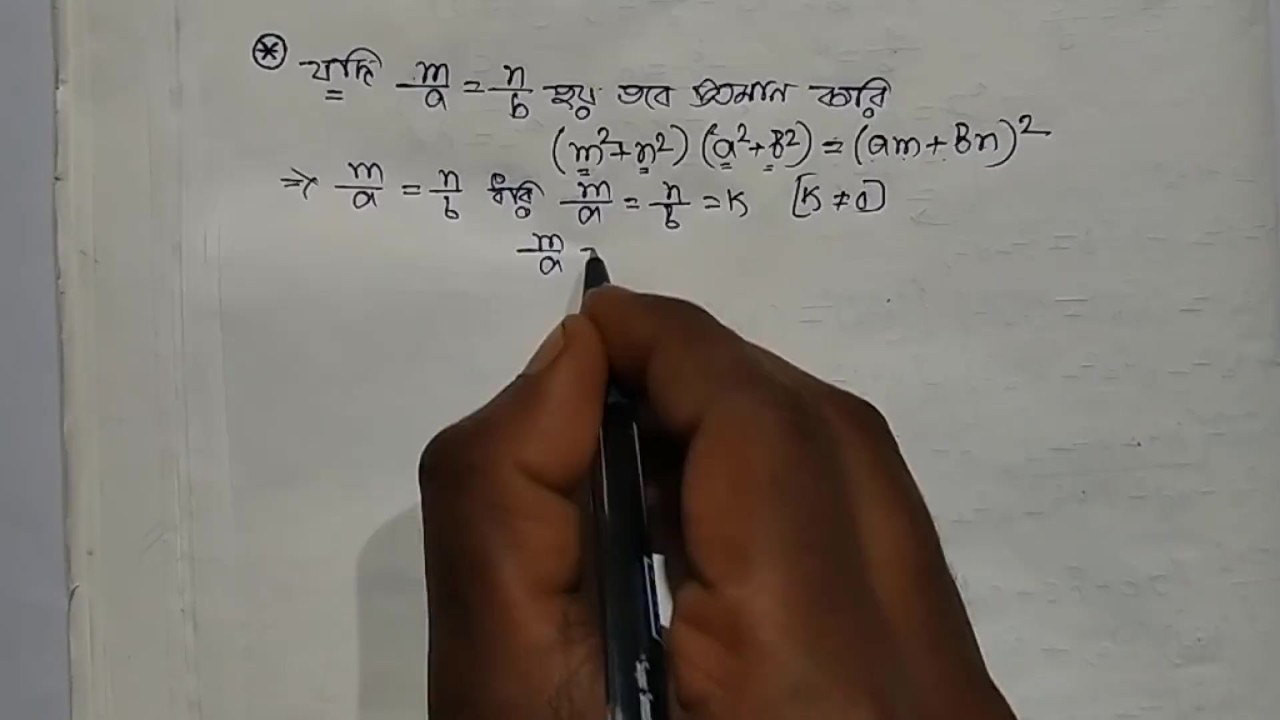 ⊛ যদি m/a = n/b হয় তবে প্রমান করি
(m²+n²) (a²+b²) = (am+bn)²
⇒ m/a = n/b ধরি m/a = n/b = K [K ≠ 0]
m/a =